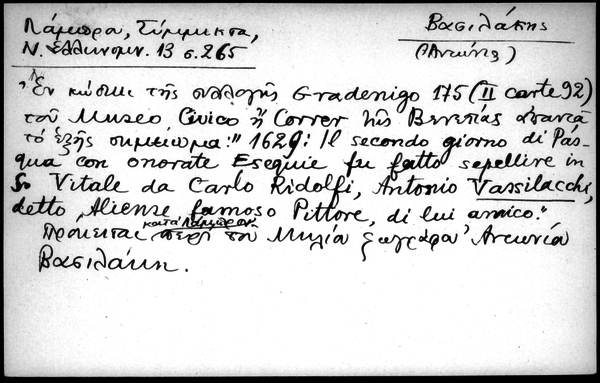 Λάμπρου, Σύμμικτα,
Ν. Ελληνομν. 13 σ. 265
Βασιλάκης
(Αντώνιος)
"Εν κώδικι της συλλογής Gradenigo 175 (II carte 92)
του Museo Civico ή Correr της Βενετίας απαντά
το εξής σημείωμα:" 1629: Il secondo giorno di Pás-
qua con onorate Esequie fu fatto sepellire in
S. Vitale da Carlo Ridolfi, Antonio Vassilacchi,
detto Aliense famoso Pittore, di lui amico."
Πρόκειται κατά Λάμπρον περί του Μηλίου ζωγράφου Αντωνίου
Βασιλάκη.